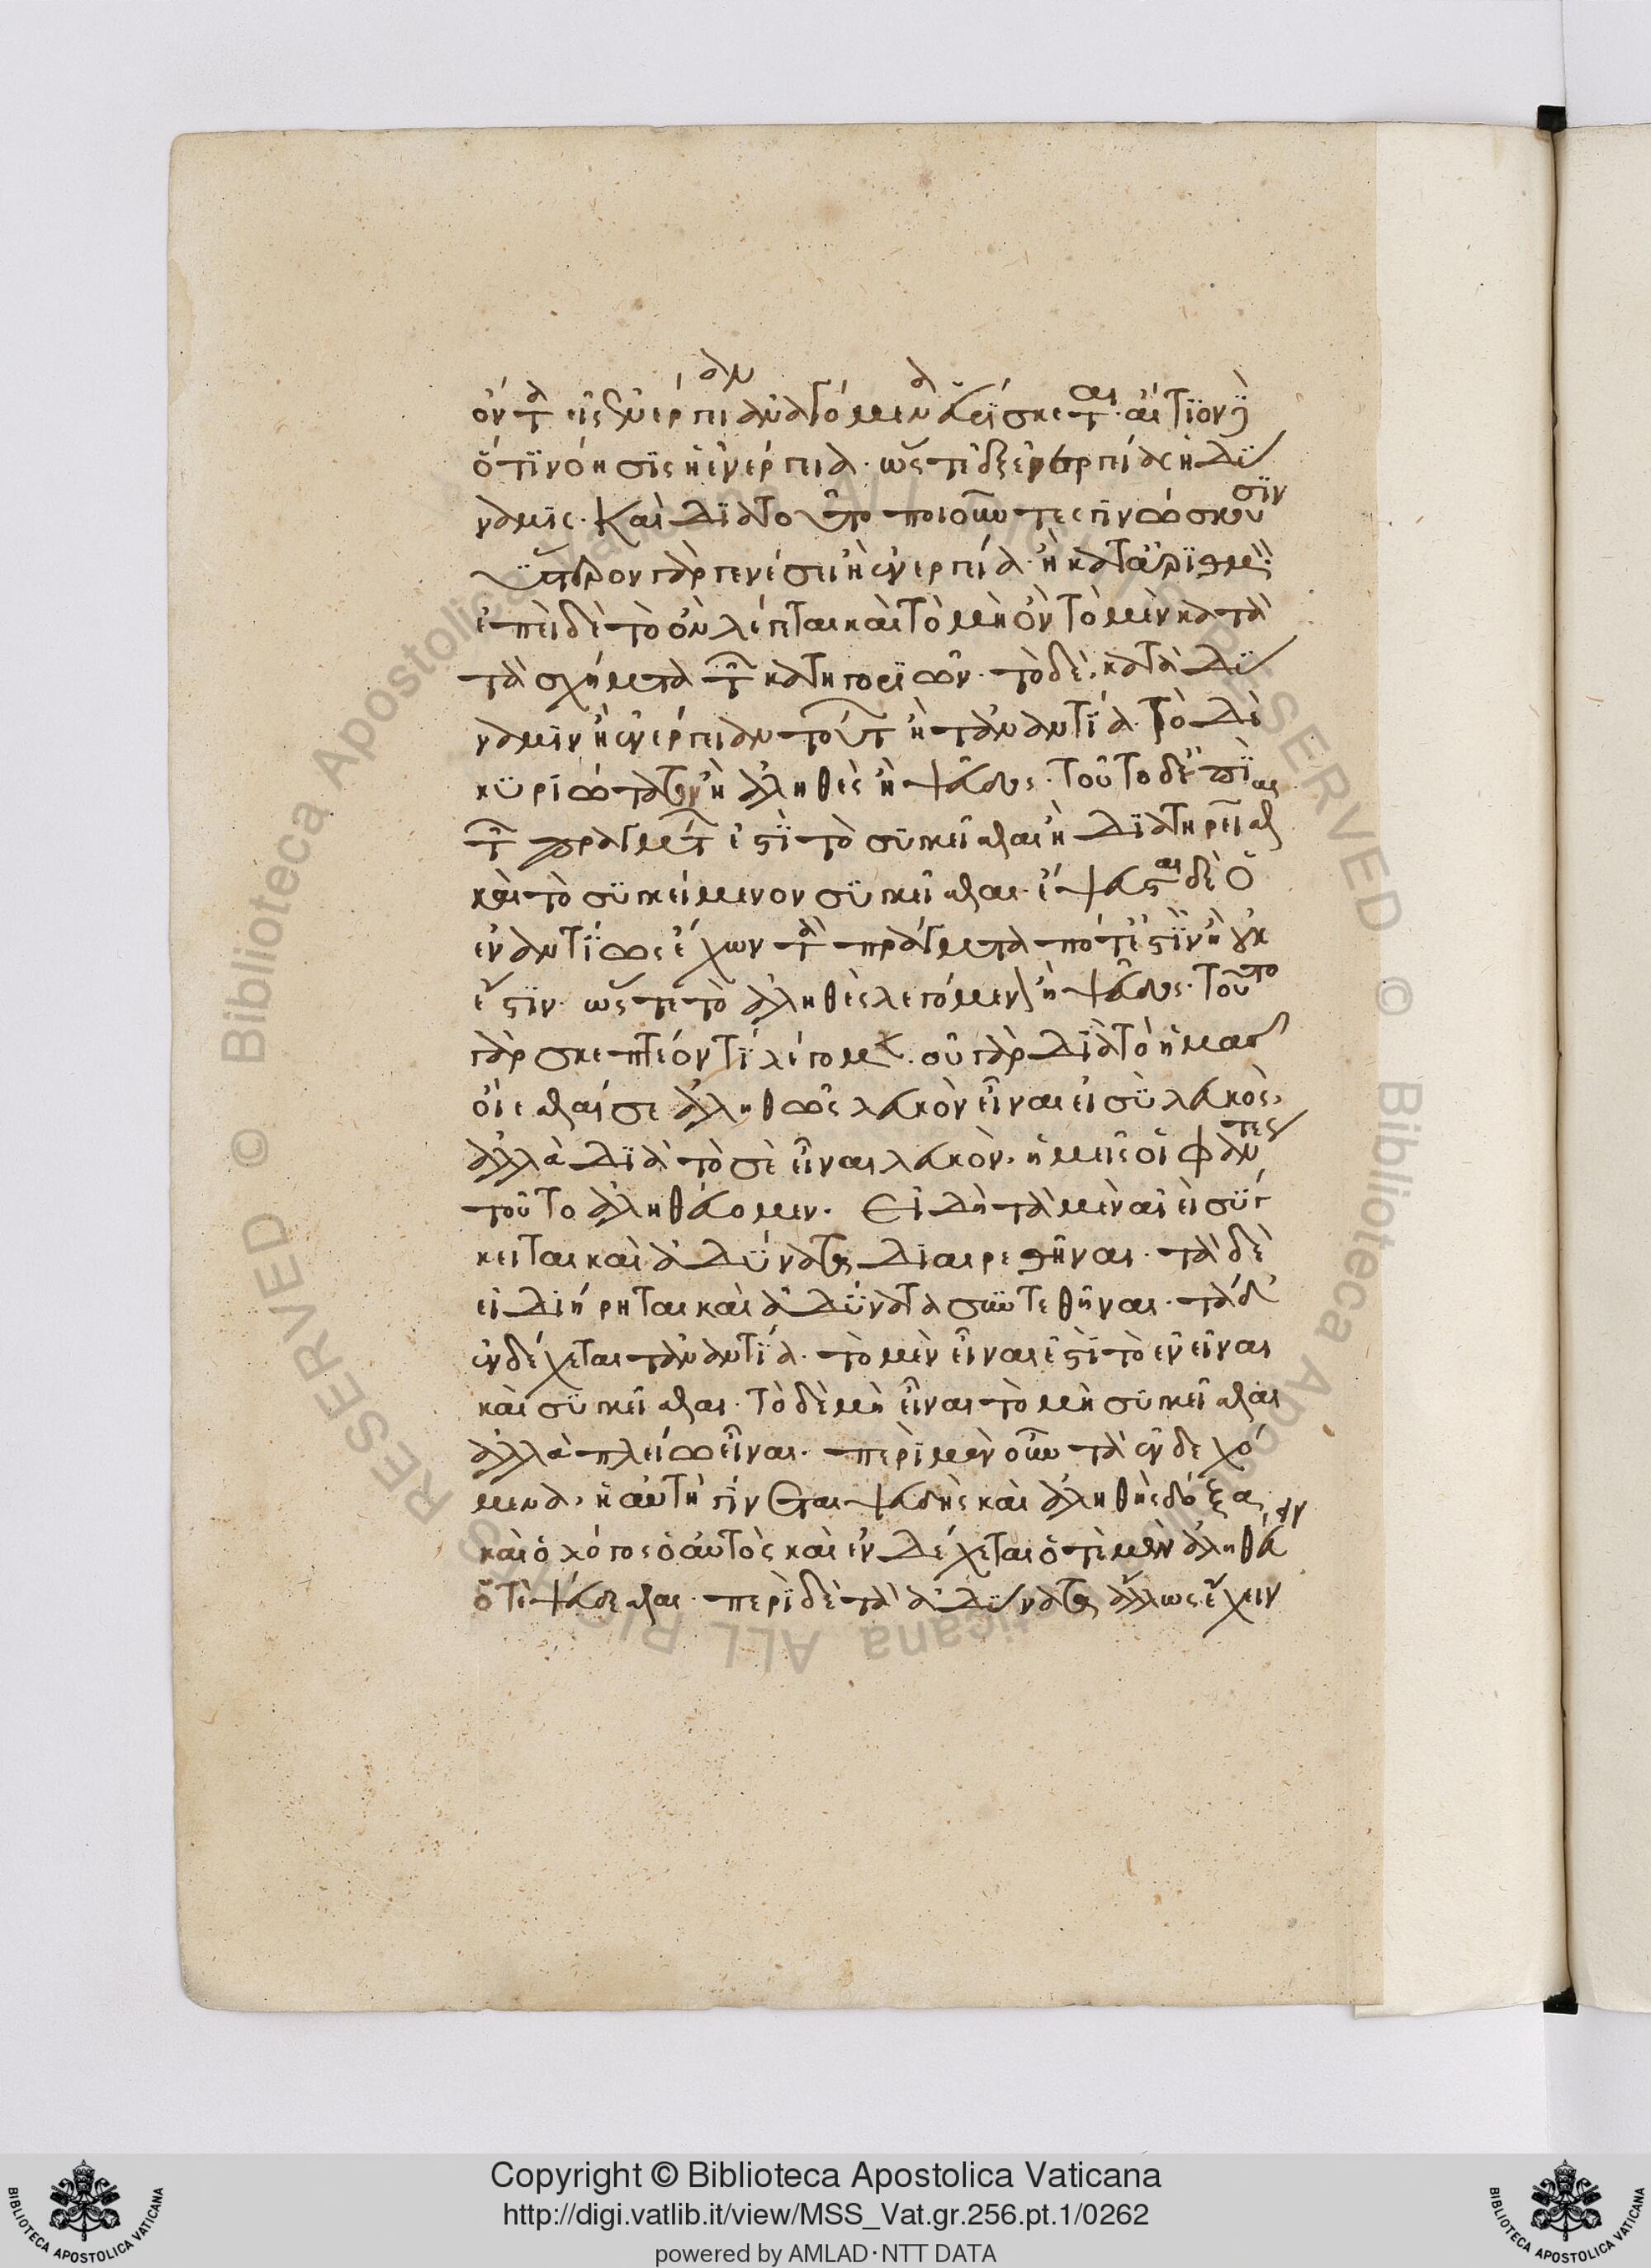 ὄντα εἰς ἐνέργειαν ἀναγόμενα εὑρίσκεται. αἴτιον δὲ
ὅτι νόησις ἡ ἐνέργεια. ὥστ' ἐξ ἐνεργείας ἡ δύ
ναμις. καὶ διὰ τοῦτο ποιοῦντες γινώσκουσιν
ὕστερον γὰρ γενέσει ἡ ἐνέργεια ἡ κατ' ἀριθμόν.
ἐπεὶ δὲ τὸ ὂν λέγεται καὶ τὸ μὴ ὂν τὸ μὲν κατὰ
τὰ σχήματα τῶν κατηγοριῶν. τὸ δὲ κατὰ δύ
ναμιν ἢ ἐνέργειαν τούτων ἢ τἀναντία. τὸ δὲ
κυριώτατα ὂν ἢ ἀληθὲς ἢ ψεῦδος. τοῦτο δ' ἐπὶ
τῶν πραγμάτων ἐστὶ τὸ συγκεῖσθαι ἢ διαιρεῖσθαι
καὶ τὸ συγκείμενον συγκεῖσθαι. ἔψευσται δὲ ὁ
ἐναντίως ἔχων ἢ τὰ πράγματα πότ' ἐστὶν ἢ οὐκ
ἔστιν. ὥστε τὸ ἀληθὲς λεγόμενον ἢ ψεῦδος. τοῦτο
γὰρ σκεπτέον τί λέγομεν. οὐ γὰρ διὰ τὸ ἡμᾶς
οἴεσθαί σε ἀληθῶς λευκὸν εἶναι εἶ σὺ λευκὸς,
ἀλλὰ διὰ τὸ σὲ εἶναι λευκὸν, ἡμεῖς οἱ φάντες
τοῦτο ἀληθεύομεν. Εἰ δὴ τὰ μὲν αἰεὶ σύγ
κειται καὶ ἀδύνατα διαιρεθῆναι. τὰ δὲ
εἰ διήρηται καὶ ἀδύνατα συντεθῆναι. τὰ δ'
ἐνδέχεται τἀναντία. τὸ μὲν εἶναί ἐστι τὸ ἓν εἶναι
καὶ συγκεῖσθαι. τὸ δὲ μὴ εἶναι τὸ μὴ συγκεῖσθαι
ἀλλὰ πλείω εἶναι. περὶ μὲν οὖν τὰ ἐνδεχό
μενα, ἡ αὐτὴ γίνεται ψευδὴς καὶ ἀληθὴς δόξα,
καὶ ὁ λόγος ὁ αὐτὸς καὶ ἐνδέχεται ὁτὲ μὲν ἀληθεύειν
ὁτὲ ψεύδεσθαι. περὶ δὲ τὰ ἀδύνατα ἄλλως ἔχειν
Copyright © Biblioteca Apostolica Vaticana
http://digi.vatlib.it/view/MSS_Vat.gr.256.pt.1/0262
powered by AMLAD·NTT DATA
BIBLIOTECA APOSTOLICA VATICANA
BIBLIOTECA APOSTOLICA VATICANA